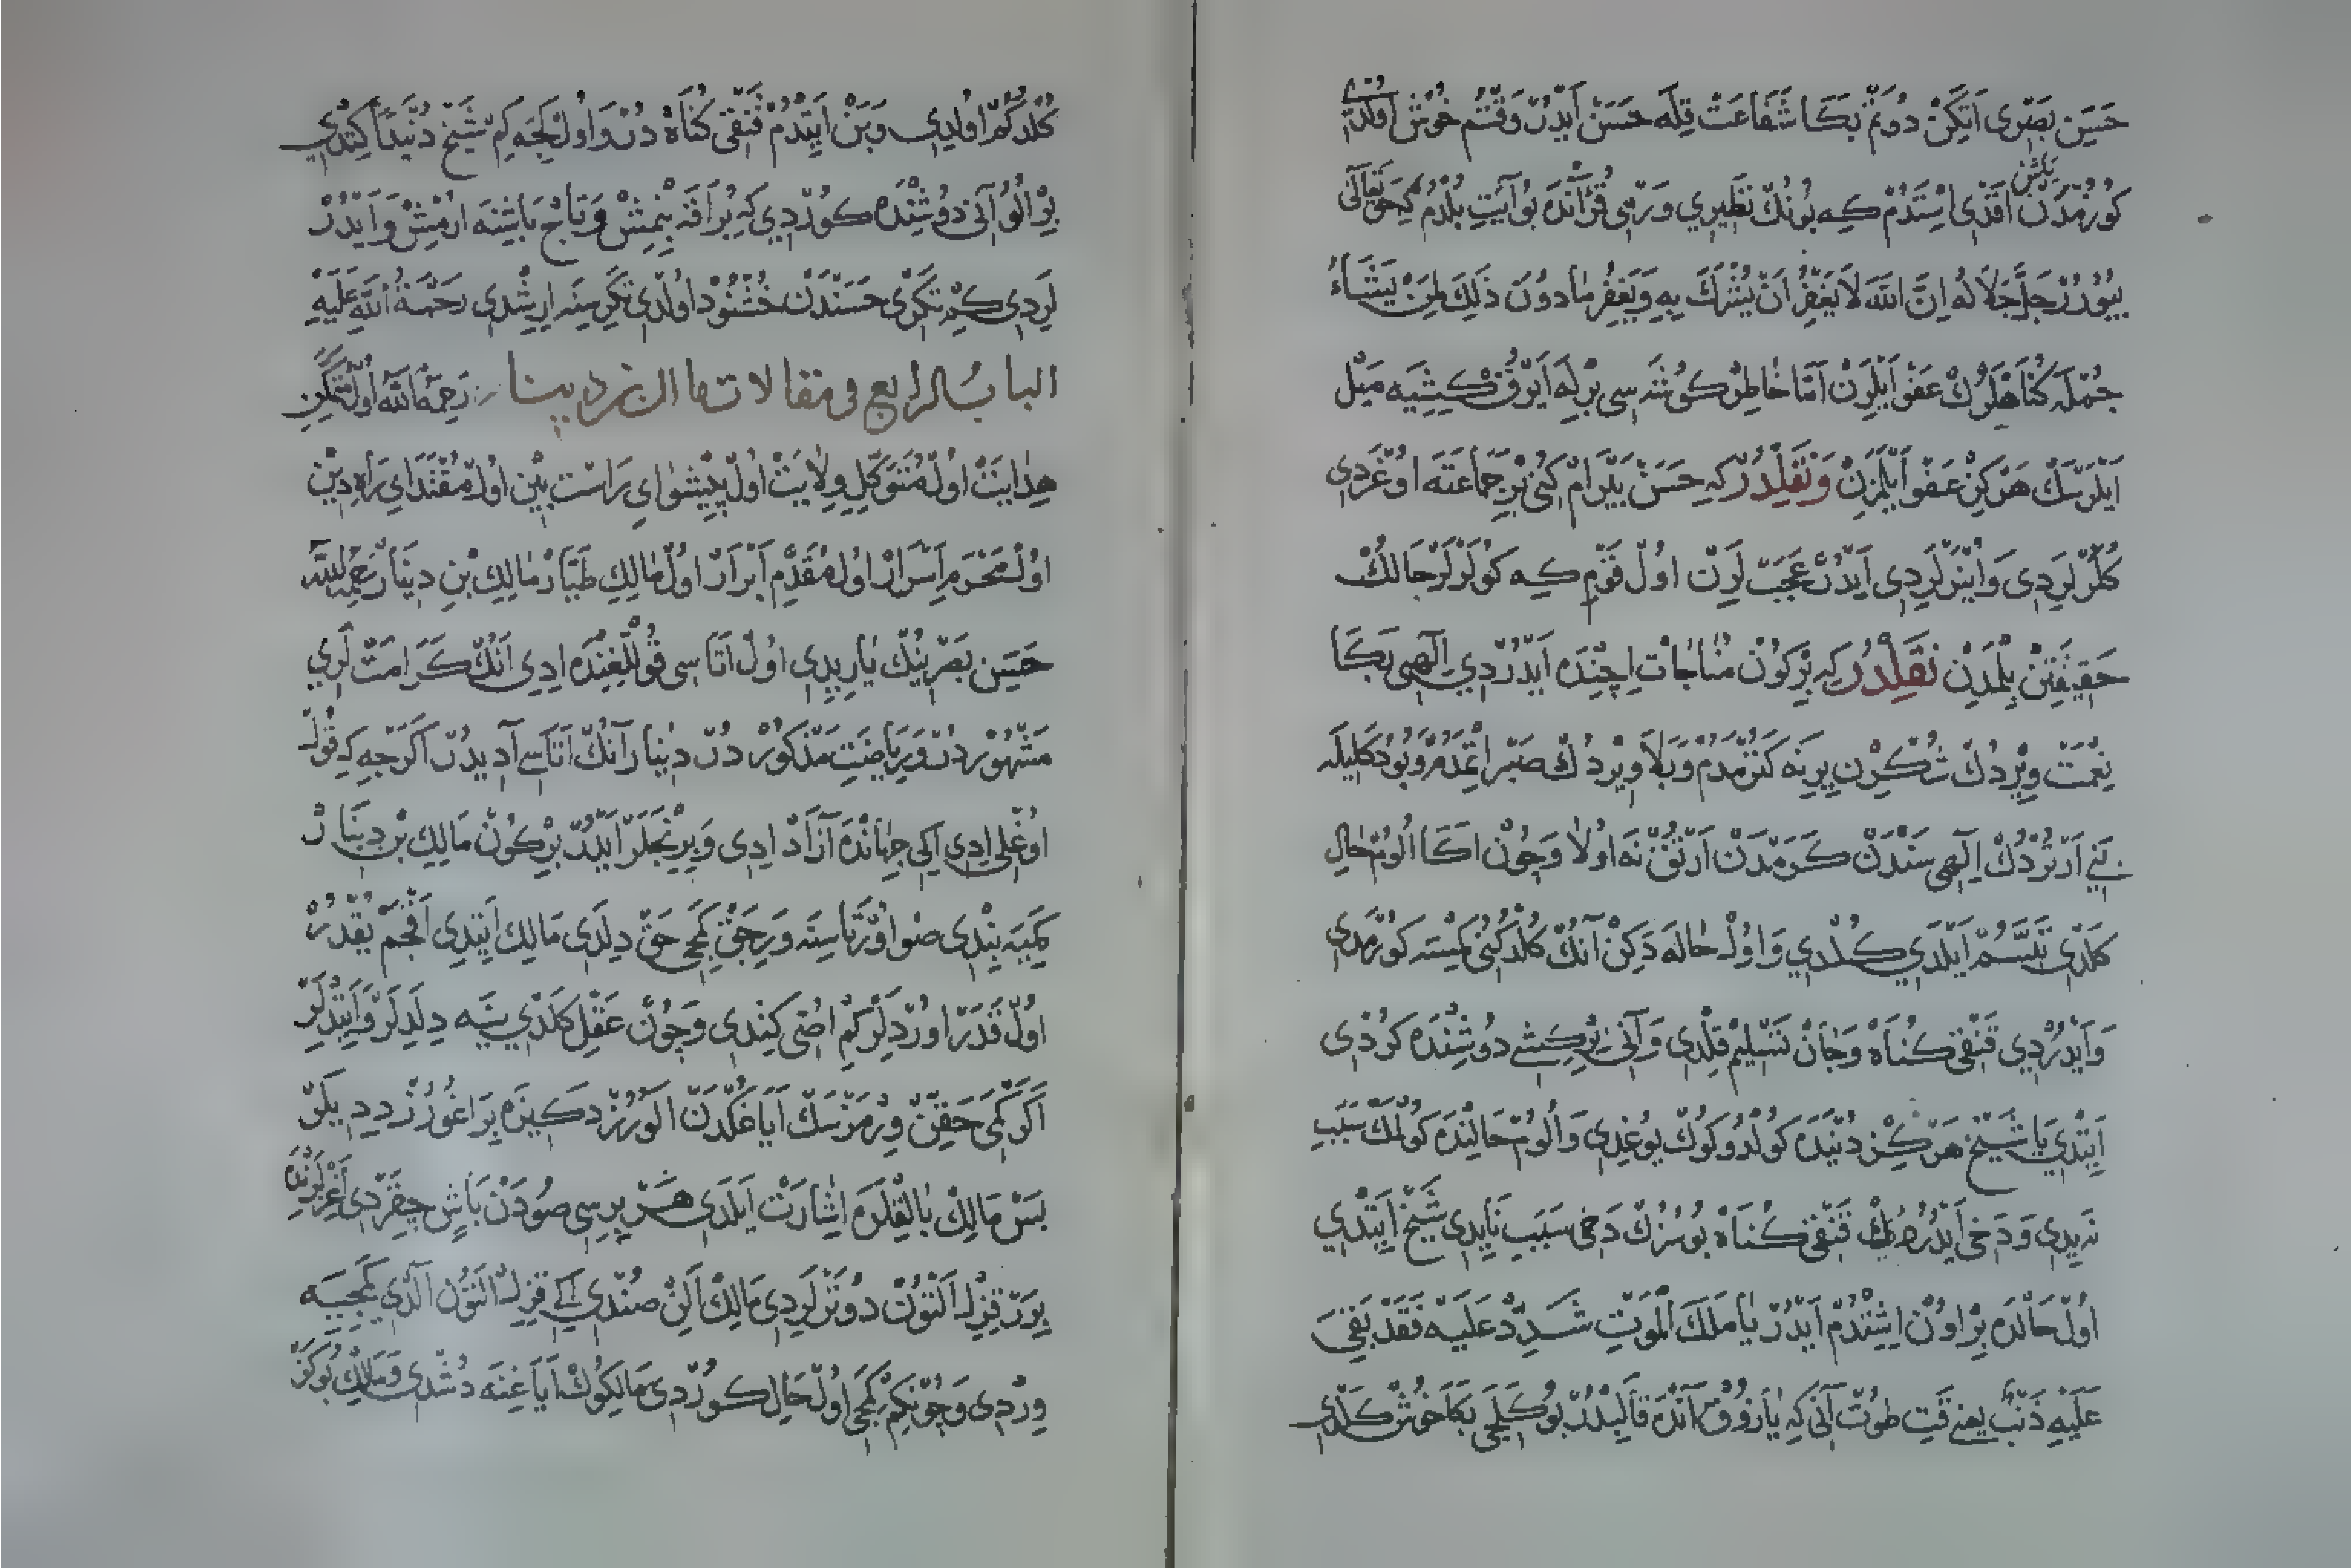 حسن بصری اتكن دوتم بكا شفاعت قله حسن ایدر وقتم خوش اولدی
كورمدن اقدی استدم كه بونك نظیری ورمی قرآنده بو آیت بلدم كه حق تعالی
بیورر جل جلاله ان الله لا یغفر ان یشرك به ویغفر ما دون ذلك لمن یشاء
جمله كناهلرك عفو ایلرن اما خاطر كوشه سی برله ایرق كشیه میل
ایلرسك هركز عفو ایلمزن ونقلدر كه حسن بیرام كنی بر جماعته اوغردی
كلرلردی واینرلردی ایدر عجبلرن اول قوم كه كولرلر حالك
حقیقتن بلمدن نقلدر كه بر كون مناجات ایچنده ایدردی الهی بكا
نعمت ویردك شكرن یرنه كتورمدم وبلا ویردك صبر اتمدم وبودكلیله
الهی سندن كرمدن ارتق نه اولا وچون اكا الوم حال
كلدی تبسم ایلدی كلدی واول حاله دكن آنك كلدكنی كمسه كورمدی
وایدردی قنقی كناه وجان تسلیم قلدی وآنی بر كشی دوشنده كوردی
ایتدی یا شیخ هركز دنیده كولدوكوك یوغدی والوم حالنده كولمك سبب
نه یدی ودخی ایدردك قنقی كناه بو سزك دخی سبب نایدی شیخ ایتدی
اول حالده بر اون اشتدم ایدر یا ملك الموت شدد علیه فقد بقی
علیه ذنب یعنی قت طوت آنی كه یازوق آنده قالبدر بو كلجی بكا خوش كلدی
كلدكم اولیدی وبن ایتدم قنقی كناه در واول كجه كم شیخ دنیدا كتدی
بر الو آنی دوشنده كوردی كه براقه بنمش وتاج باشنه ارمش وایدر
لردی كم تكری حسندن خشنود اولدی تكرسنه ارشدی رحمة الله علیه
الباب الرابع فی مقالات مالك بن دینار رحمة الله اول متمكن
هدایت اول متوكل ولایت اول پیشوای راست بین اول مقتدای راه دین
اول محرم اسرار اول مقدم ابرار اول مالك طیار مالك بن دینار رحمه الله
حسن بصرینك یاریدی اول اتاسی قوللغنده ادی انك كرامتلری
مشهوردر وریاضت مذكور در دینار آنك اتاسی آدیدر اكرچه كه قول
اوغلی ادی ایكی جهانده آزاد ادی وبرنجلر ایدر بر كون مالك بن دینار
كمیه بندی صو اورتاسنه ورجق كمجی حق دلدی مالك ایتدی اقچم یقدر
اول قدر اوردلر كم اصی كندی وچون عقل كلدی ینه دلدلر وایتدلر
اكر كمی حقن ورمزسك ایاغكدن الورز دكیزه براغورز ددیلر
بس مالك بالقلره اشارت ایلدی هر بریسی صودن باش چقردی اغزلرنده
برر قزل التون دوترلردی مالك الن صندی ایكی قزل التون آلدی كمجیه
وردی وچونكم كمجی اول حال كوردی مالكوك ایاغنه دشدی ومالك بو كز